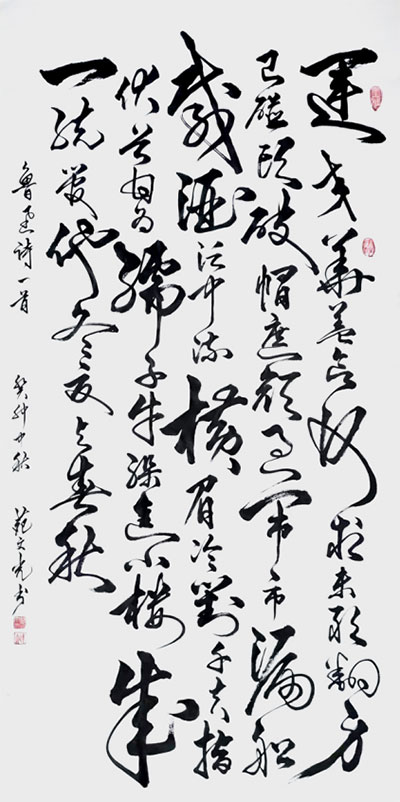 運交華蓋欲何求未敢翻身
已碰頭破帽遮顏過鬧市漏船
載酒泛中流橫眉冷對千夫指
伏首甘為孺子牛躲進小樓成
一統管他冬夏與春秋
魯迅詩一首 癸 中秋 範文光書